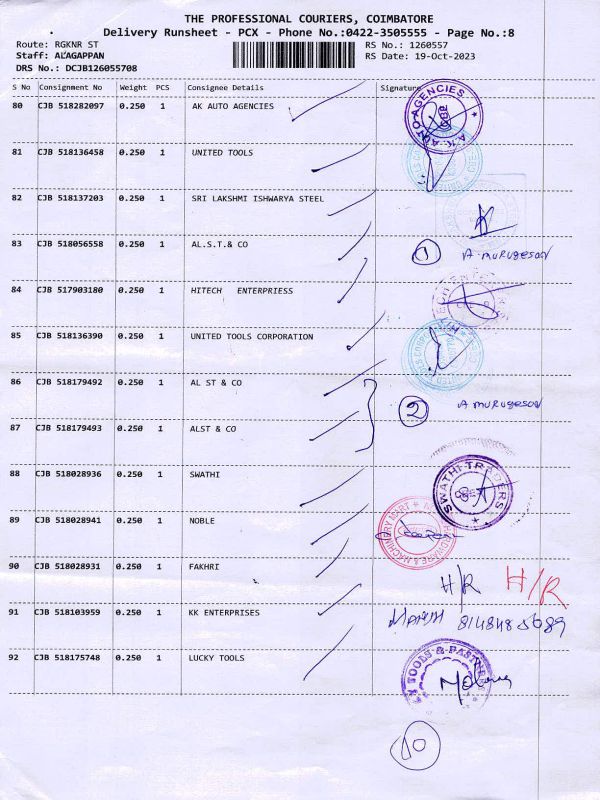 THE PROFESSIONAL COURIERS, COIMBATORE
Delivery Runsheet - PCX - Phone No.:0422-3505555 - Page No.:8
Route: RGKNR ST RS No.: 1260557
Staff: ALAGAPPAN RS Date: 19-Oct-2023
DRS No.: DCJB126055708
S No Consignment No Weight PCS Consignee Details Signature
80 CJB 518282097 0.250 1 AK AUTO AGENCIES
81 CJB 518136458 0.250 1 UNITED TOOLS
82 CJB 518137203 0.250 1 SRI LAKSHMI ISHWARYA STEEL
83 CJB 518056558 0.250 1 AL.S.T.& CO 1 A. murugesan
84 CJB 517903180 0.250 1 HITECH ENTERPRIESS
85 CJB 518136390 0.250 1 UNITED TOOLS CORPORATION
86 CJB 518179492 0.250 1 AL ST & CO 2 A murugesan
87 CJB 518179493 0.250 1 ALST & CO
88 CJB 518028936 0.250 1 SWATHI SWATHI TRADERS
89 CJB 518028941 0.250 1 NOBLE HARDWARE & MACHINERY MART
90 CJB 518028931 0.250 1 FAKHRI H/R H/R
91 CJB 518103959 0.250 1 KK ENTERPRISES
92 CJB 518175748 0.250 1 LUCKY TOOLS
10